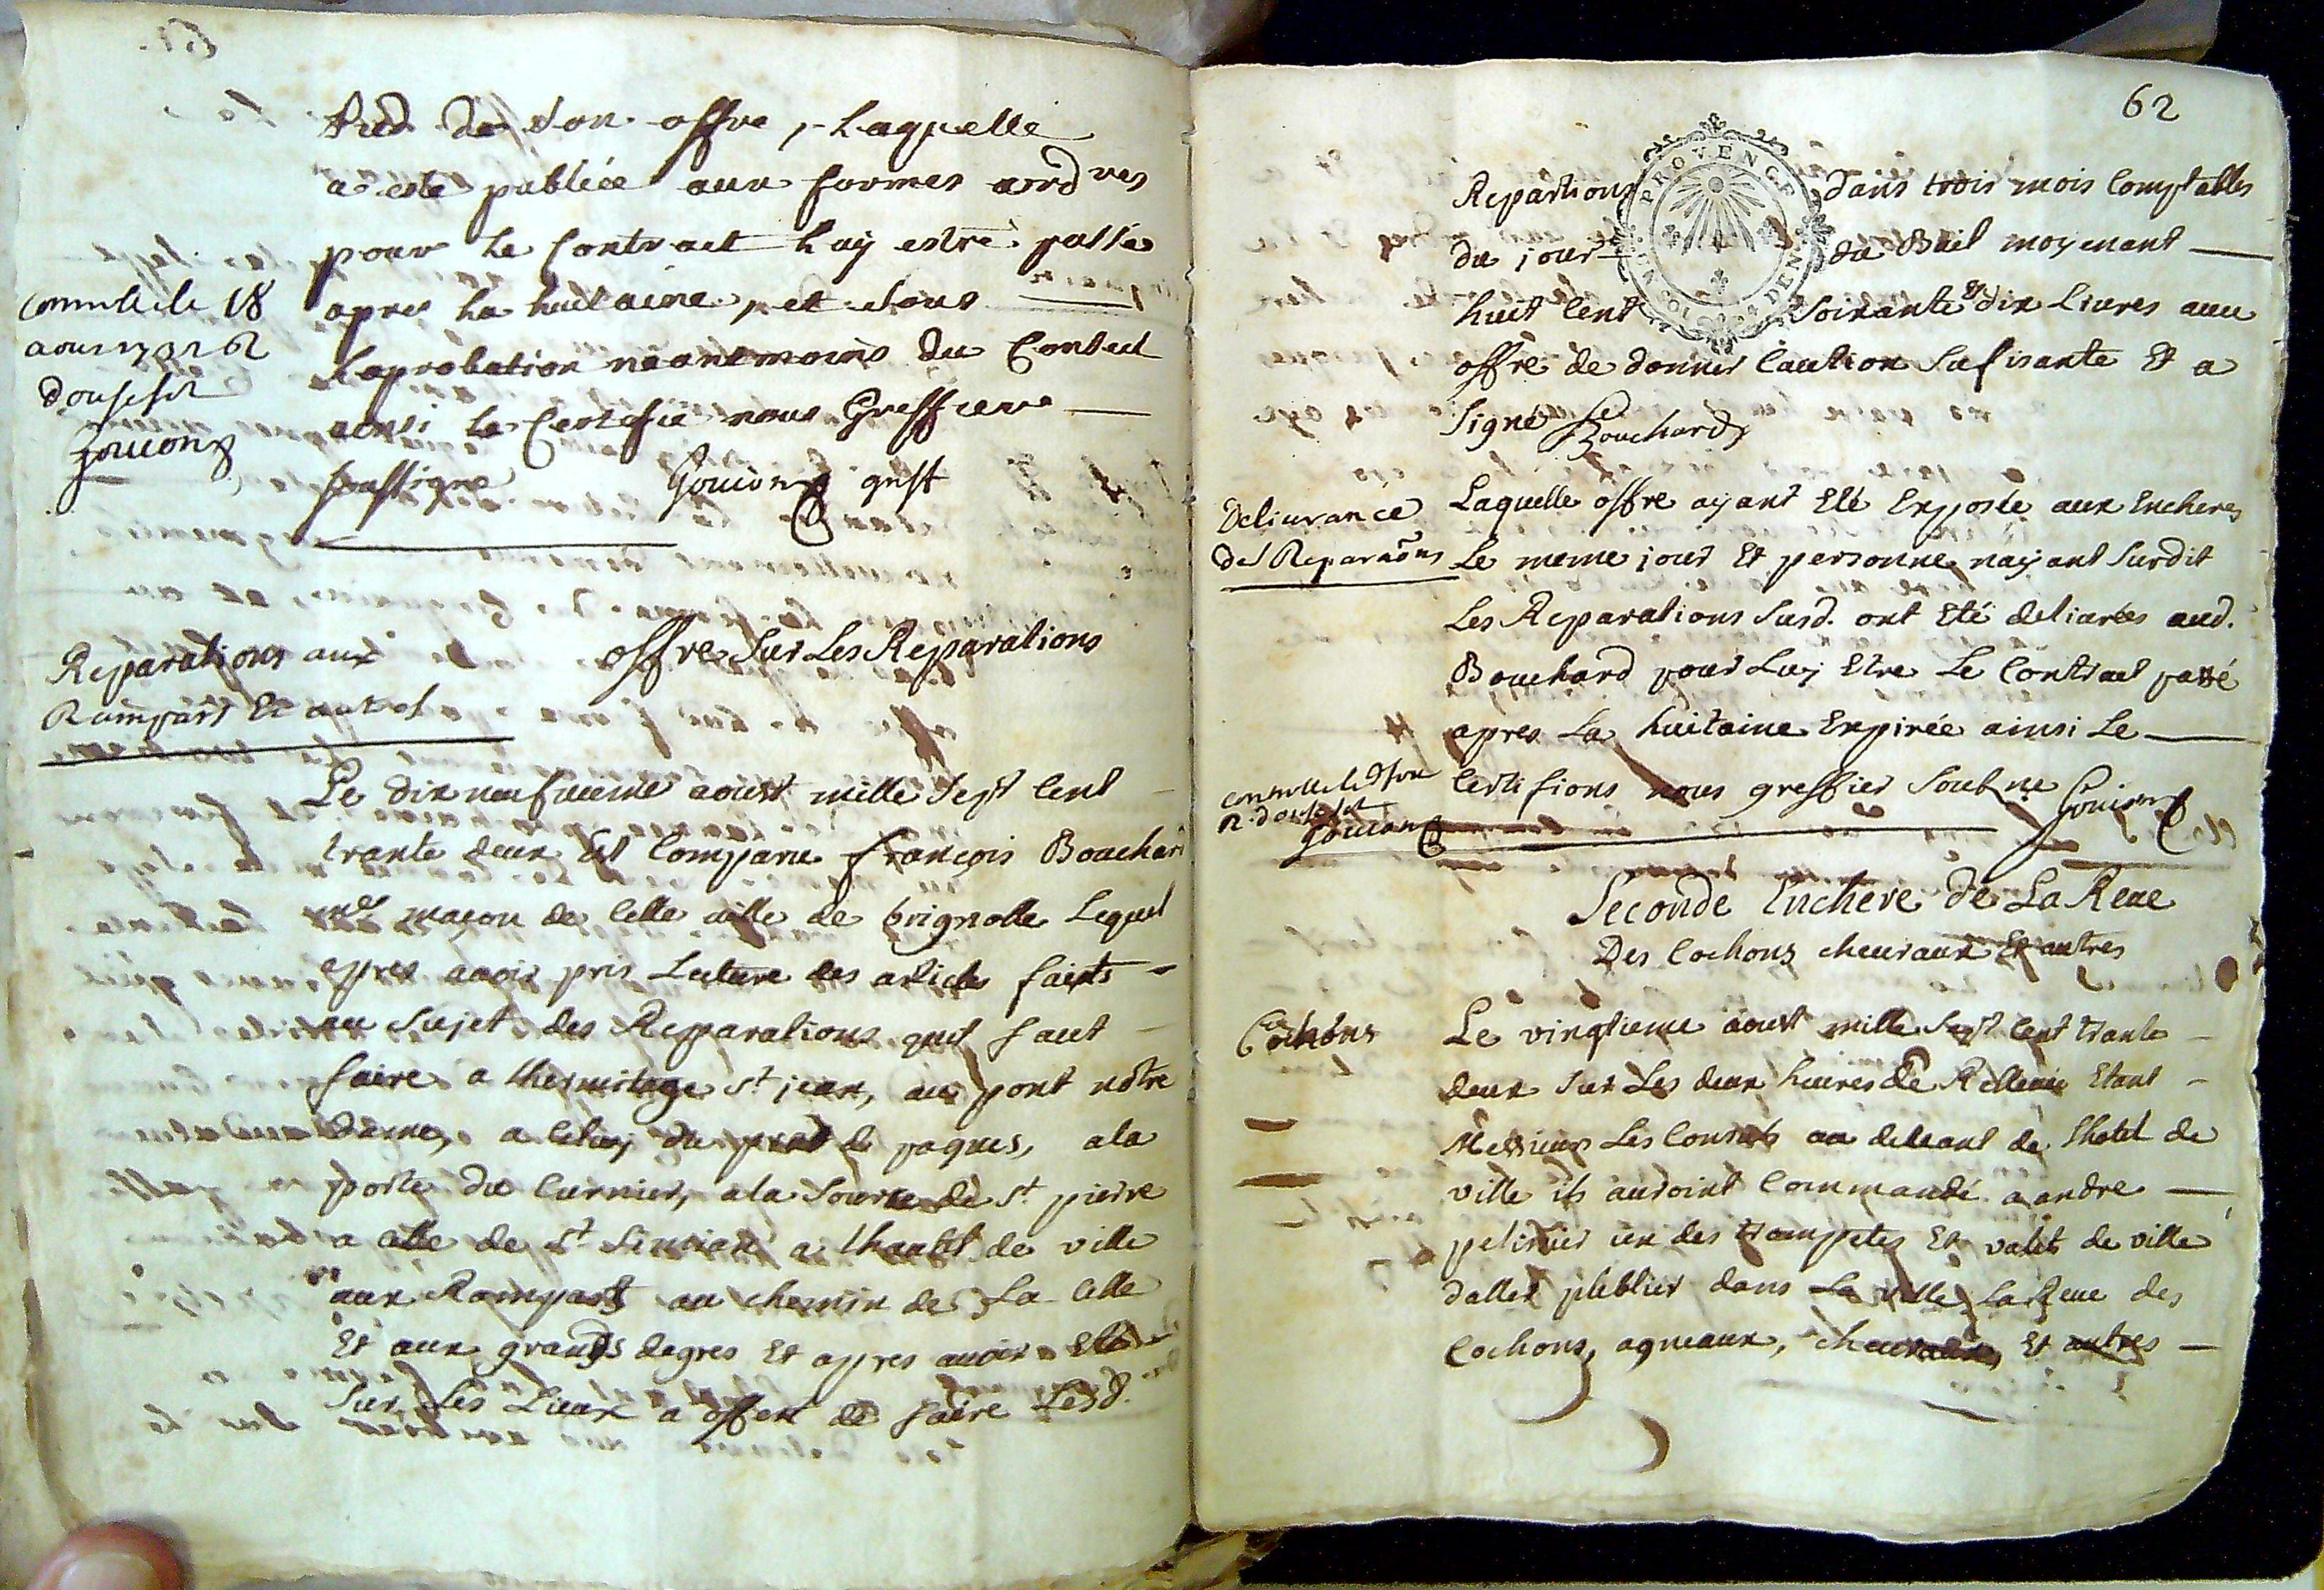 aud de son offre, Laquelle
a esté publiée aux formes aordres
pour le Contract luy estre passé
apres la huitaine, et sous
Laprobation néantmoins du Conseil
ainsi le Certifie nous Greffiere
soussigne Gouion greff
controlle le 18
aoust 1732
Gouion
Reparations aux
Rampars Et autres
offre Sur Les Reparations
Le dix neufvieme aoust mille Sept Cent
trante deux Est Comparu françois Bouchard
mer maçon de Cette ville de brignolle Lequel
apres avoir pris Lecture des articles faits
au Sujet des Reparations quil faut
faire a lhermitage St jean, au pont nôtre
dame, a Celuy du prad de paques, ala
porte du Curnier, ala Source de St pierre
a Celle de St Simian a lhautel de ville
aux Rampars au chemin de La Celle
Et aux grands degres Et apres avoir Eté
Sur Les Lieux a offert de faire Lesd.
62
PROVENCE
Reparations dans trois mois Comptables
du jour du Bail moyenant
huit Cent Soixante Et dix Livres aux
offre de donner Caution Sufisante Et a
Signé Bouchard
Delivrance
des Reparaõns
Laquelle offre ayant Eté Exposée aux Encheres
Le meme jour Et personne nayant Surdit
Les Reparations Susd. ont Eté delivrées aud.
Bouchard pour Luy Etre Le Contract passé
apres La huitaine Expirée ainsi Le
Certifions nous greffier Soubne Gouion
Gouion
Seconde Enchere de La Reve
Des Cochons chevraux Et autres
Cochons
Le vingtieme aoust mille Sept Cent trante
deux Sur Les deux heures de Rellevée Etant
Messieurs Les Consuls au devant de lhotel de
ville ils auroint Commandé a andre
pelissier un des trompetes Et valets de ville
daller publier dans La ville La Reve des
Cochons, agneaux, chevraux, Et autres